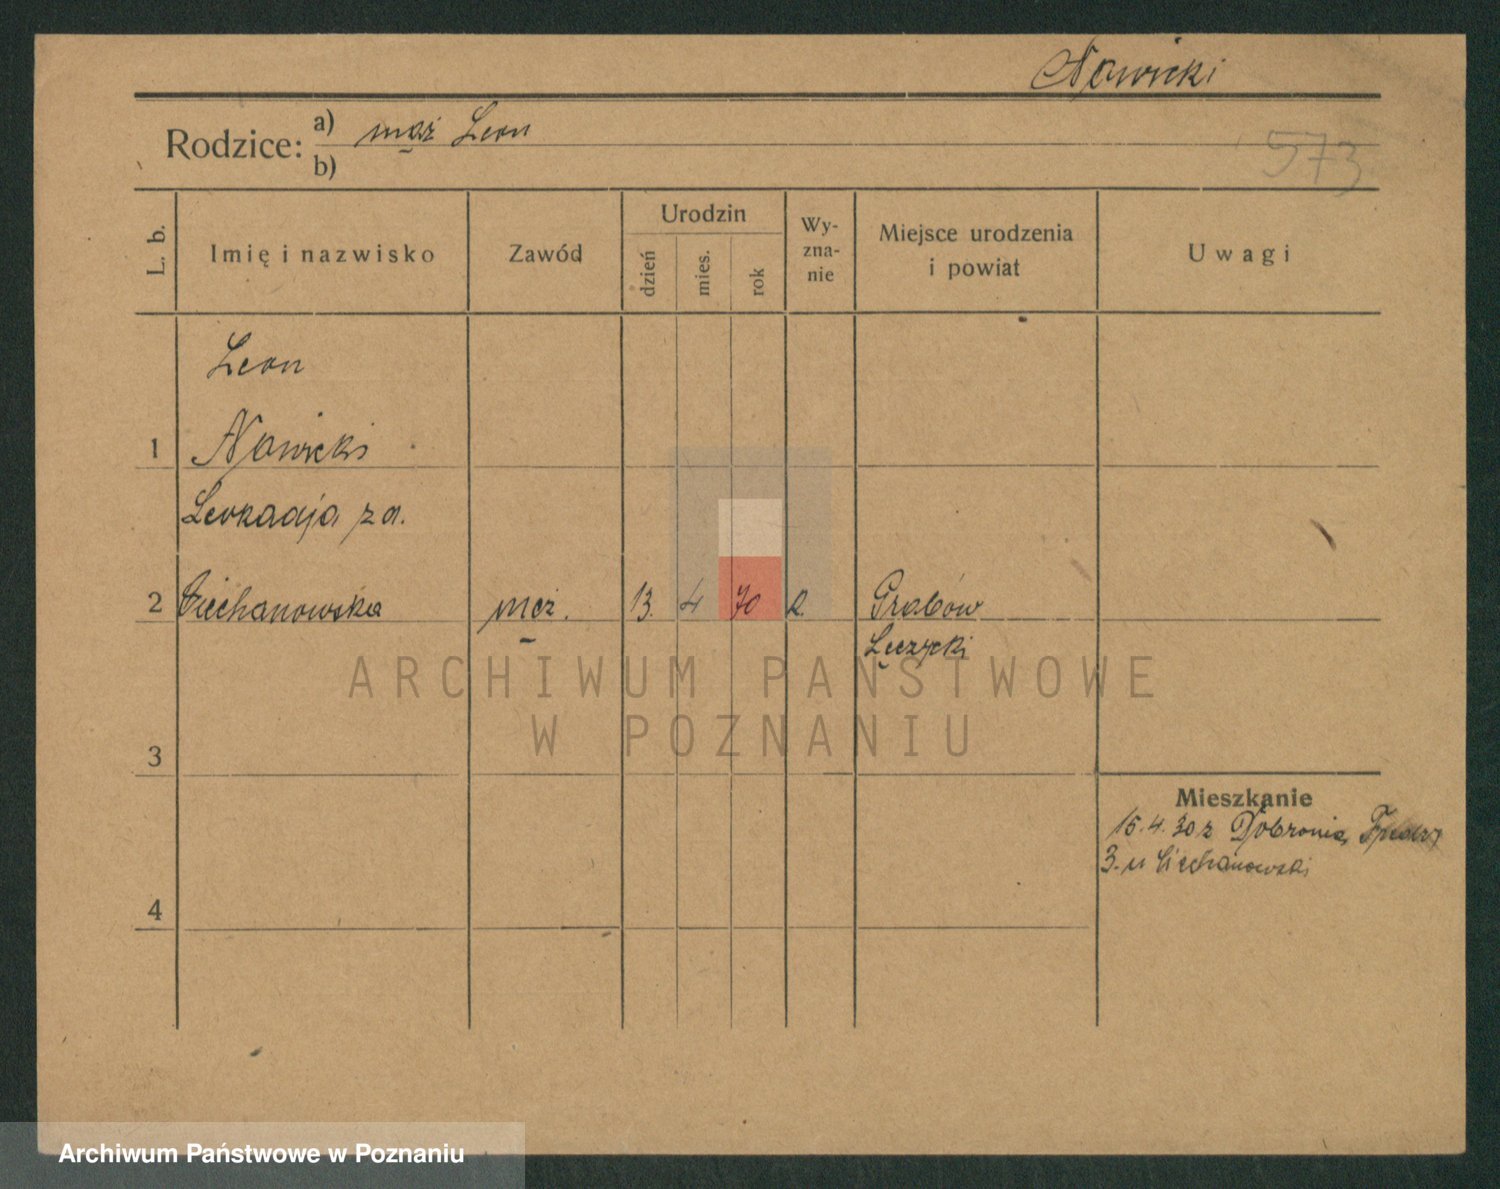 Nowicki
Rodzice: a) mąż Leon
b)
573
L. b.
Imię i nazwisko
Zawód
Urodzin
dzień
mies.
rok
Wy-
zna-
nie
Miejsce urodzenia
i powiat
Uwagi
Leon
1 Nowicki
Leokadja z d.
2 Ciechanowska męż. 13. 4 70 R. Grabów
Łęczycki
3
Mieszkanie
15.4.30 z Dobronia
3. u Ciechanowski
4
ARCHIWUM PAŃSTWOWE
W POZNANIU
Archiwum Państwowe w Poznaniu